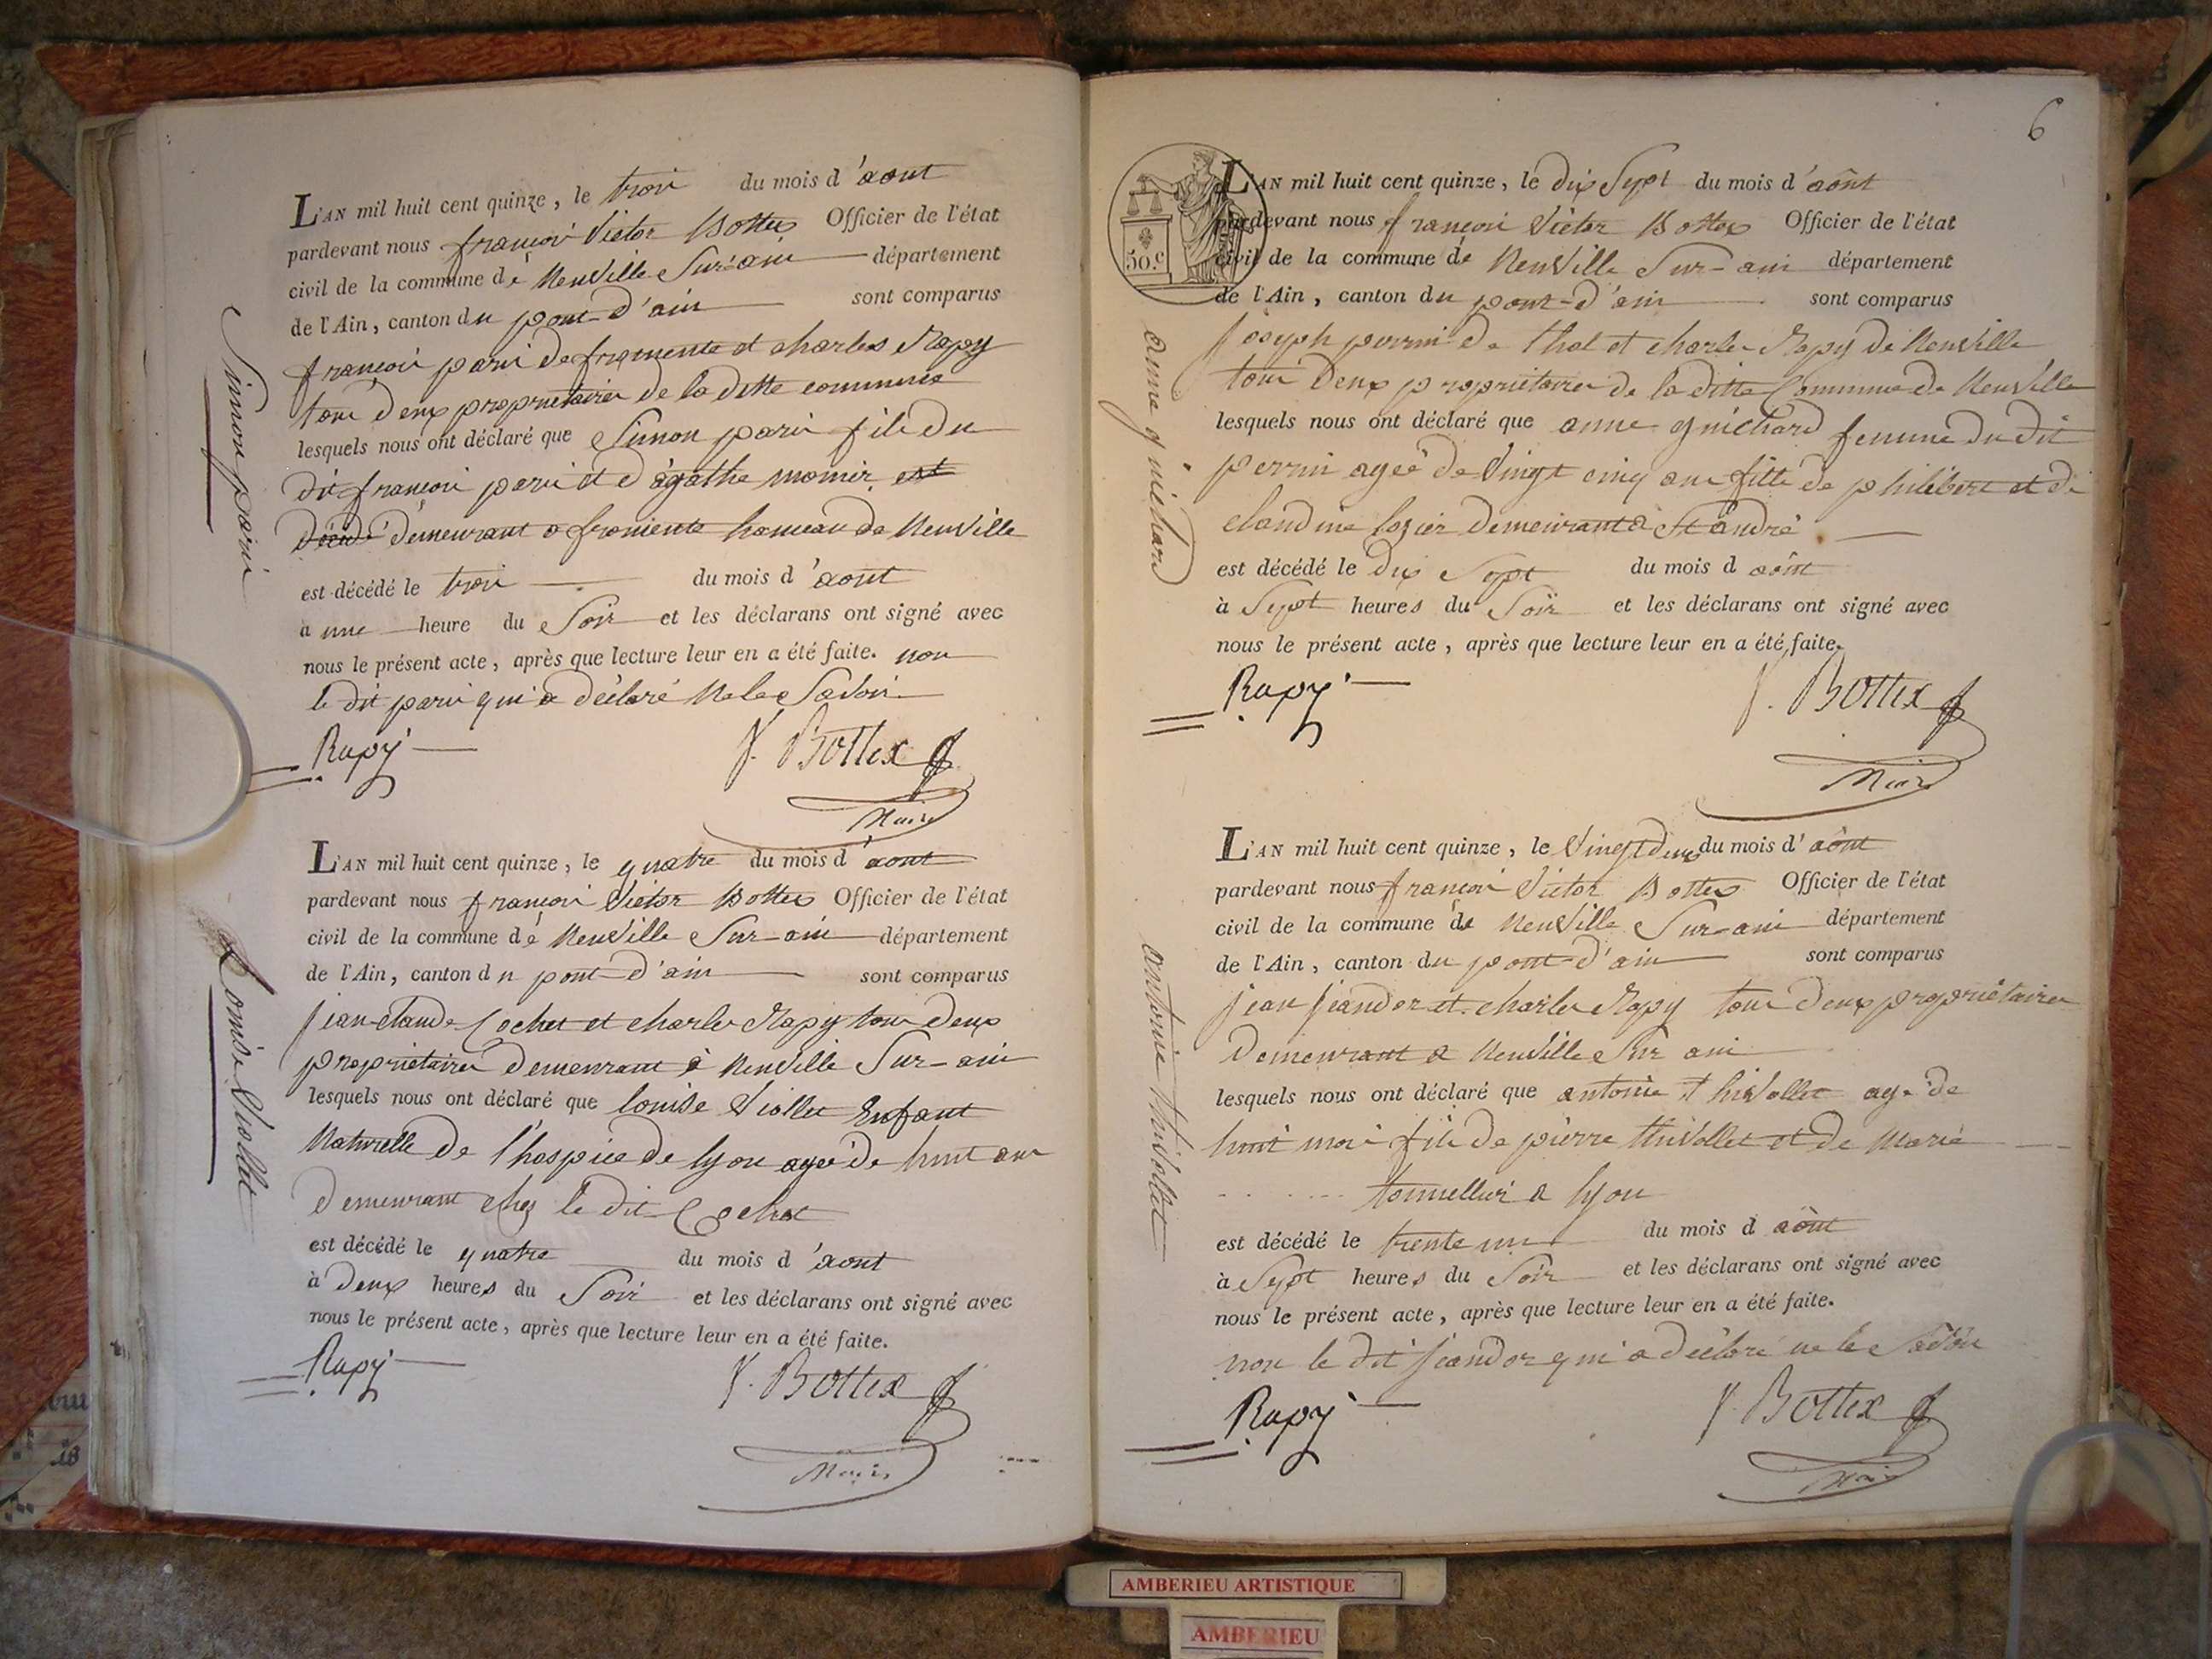 L'AN mil huit cent quinze, le troi du mois d'aout
pardevant nous françoi Victor Bottex Officier de l'état
civil de la commune de Neuville Sur-ain département
de l'Ain, canton du pont-d'ain sont comparus
françoi pari de fromente et charles Rapy
tous deux proprietaires de la ditte commune
lesquels nous ont déclaré que Simon pari fils du
dit françoi pari et d'agathe monier est
décédé demeurant a fromente hameau de Neuville
est décédé le troi du mois d'aout
à une heure du Soir et les déclarans ont signé avec
nous le présent acte, après que lecture leur en a été faite. non
le dit pari qui a déclaré ne le Savoir
Rapy F. Bottex
Maire
Simon pari
L'AN mil huit cent quinze, le quatre du mois d'aout
pardevant nous françoi Victor Bottex Officier de l'état
civil de la commune de Neuville Sur-ain département
de l'Ain, canton du pont-d'ain sont comparus
jean-claude Cochet et charles Rapy tous deux
propriétaires demeurant à Neuville Sur-ain
lesquels nous ont déclaré que louise Viollet Enfant
Naturelle de l'hospice de lyon agée de huit ans
demeurant chez le dit Cochet
est décédé le quatre du mois d'aout
à deux heures du Soir et les déclarans ont signé avec
nous le présent acte, après que lecture leur en a été faite.
Rapy F. Bottex
Maire
Louise Viollet
6
50.c
L'AN mil huit cent quinze, le dix Sept du mois d'aôut
pardevant nous françoi Victor Bottex Officier de l'état
civil de la commune de Neuville Sur-ain département
de l'Ain, canton du pont-d'ain sont comparus
joseph perrin de thol et charles Rapy de Neuville
tous deux propriétaires de la ditte Commune de Neuville
lesquels nous ont déclaré que anne guichard femme du dit
perrin agée de Vingt cinq ans fille de philibert et de
claudine lozier demeurant a St andré
est décédé le dix Sept du mois d aôut
à Sept heures du Soir et les déclarans ont signé avec
nous le présent acte, après que lecture leur en a été faite.
Rapy F. Bottex
Maire
anne guichard
L'AN mil huit cent quinze, le Vingt deux du mois d'aôut
pardevant nous françoi Victor Bottex Officier de l'état
civil de la commune de Neuville Sur-ain département
de l'Ain, canton du pont-d'ain sont comparus
jean jeandor et charles Rapy tous deux propriétaires
demeurant a Neuville Sur ain
lesquels nous ont déclaré que antoine thivollet agé de
huit moi fils de pierre thivollet et de Marie
a lyon
est décédé le trente un du mois d aôut
à Sept heures du Soir et les déclarans ont signé avec
nous le présent acte, après que lecture leur en a été faite.
non le dit jeandor qui a déclaré ne le Savoir
Rapy F. Bottex
Maire
antoine thivollet
AMBERIEU ARTISTIQUE
AMBERIEU